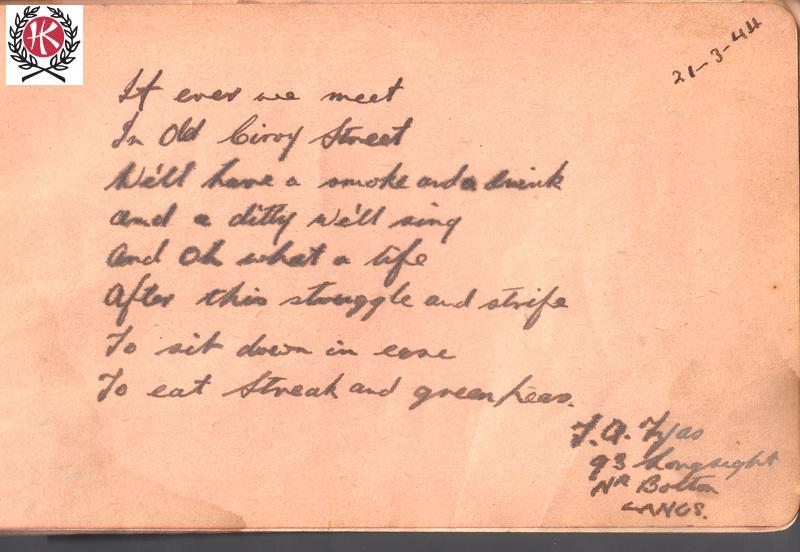 HK
21-3-44
If ever we meet
In Old Civvy Street
We'll have a smoke and a drink
and a ditty we'll sing
And Oh what a life
After this struggle and strife
To sit down in ease
To eat Streak and green peas.
F.A. Tyas
93 Longsight
NR Bolton
LANCS.